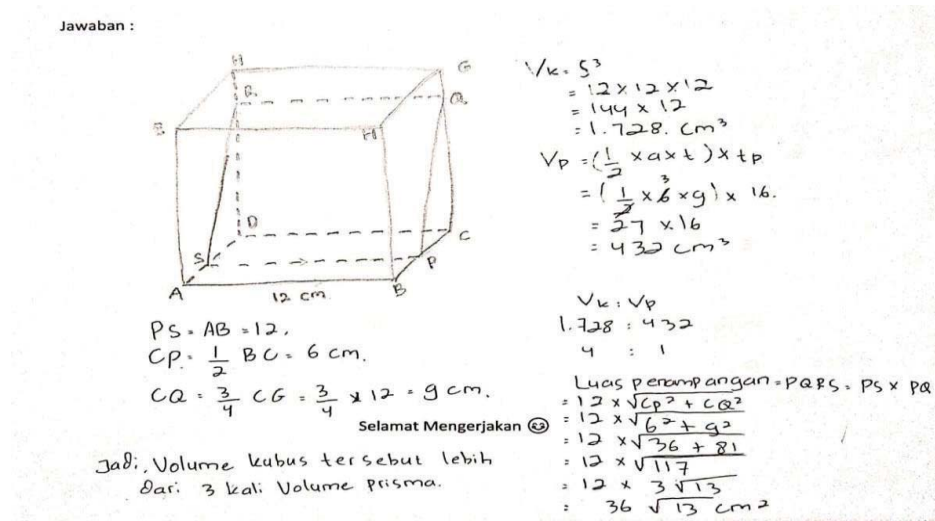 Jawaban :
H
G
R
Q
E
H
D
C
S
P
A
12 cm
B
PS = AB = 12.
CP = 1/2 BC = 6 cm.
CQ = 3/4 CG = 3/4 x 12 = 9 cm.
Selamat Mengerjakan
Jadi, Volume kubus tersebut lebih
dari 3 kali Volume prisma.
Vk = S³
= 12 x 12 x 12
= 144 x 12
= 1.728. cm³
Vp = (1/2 x a x t) x tp
= (1/2 x 6 3 x 9) x 16.
= 27 x 16
= 432 cm³
Vk : Vp
1.728 : 432
4 : 1
Luas penampangan = PQRS = PS x PQ
= 12 x √CP² + CQ²
= 12 x √6² + 9²
= 12 x √36 + 81
= 12 x √117
= 12 x 3√13
= 36 √13 cm²